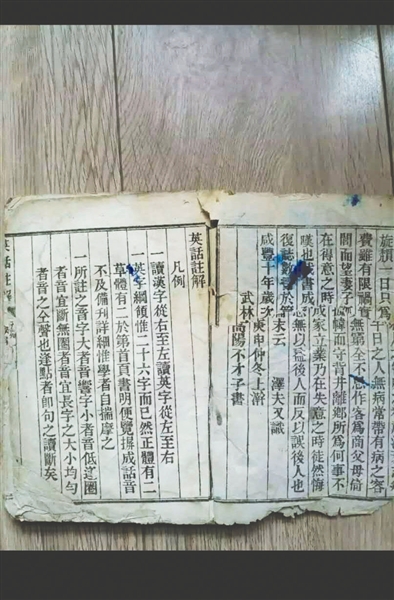 一日只爲千日之人無病常帶有病之容
費雖有限禍實無窮全不作客爲商父母倚
閭而望妻子倚幃而守背井離鄉所爲何事不
在得意之時成家立業乃在失意之時徒然悔
嘆也哉書成無以益後人而反以誤後人也
復誌數於篇末云 澤夫又識
咸豐十年歲次庚申仲冬上澣
武林高陽不才子書
英話註解
凡例
一讀漢字從右至左讀英字從左至右
一英字綱領惟二十六字而已然正體有二
草體有二於第首頁書明便覽揖成話音
不及備刊詳細惟學者自揣摩之
一所註之音字大者音響字小者音低逢圈
者音宜斷無圈者音宜長字之大小均勻
者音之仝聲也逢點者即句之讀斷矣
英話註解